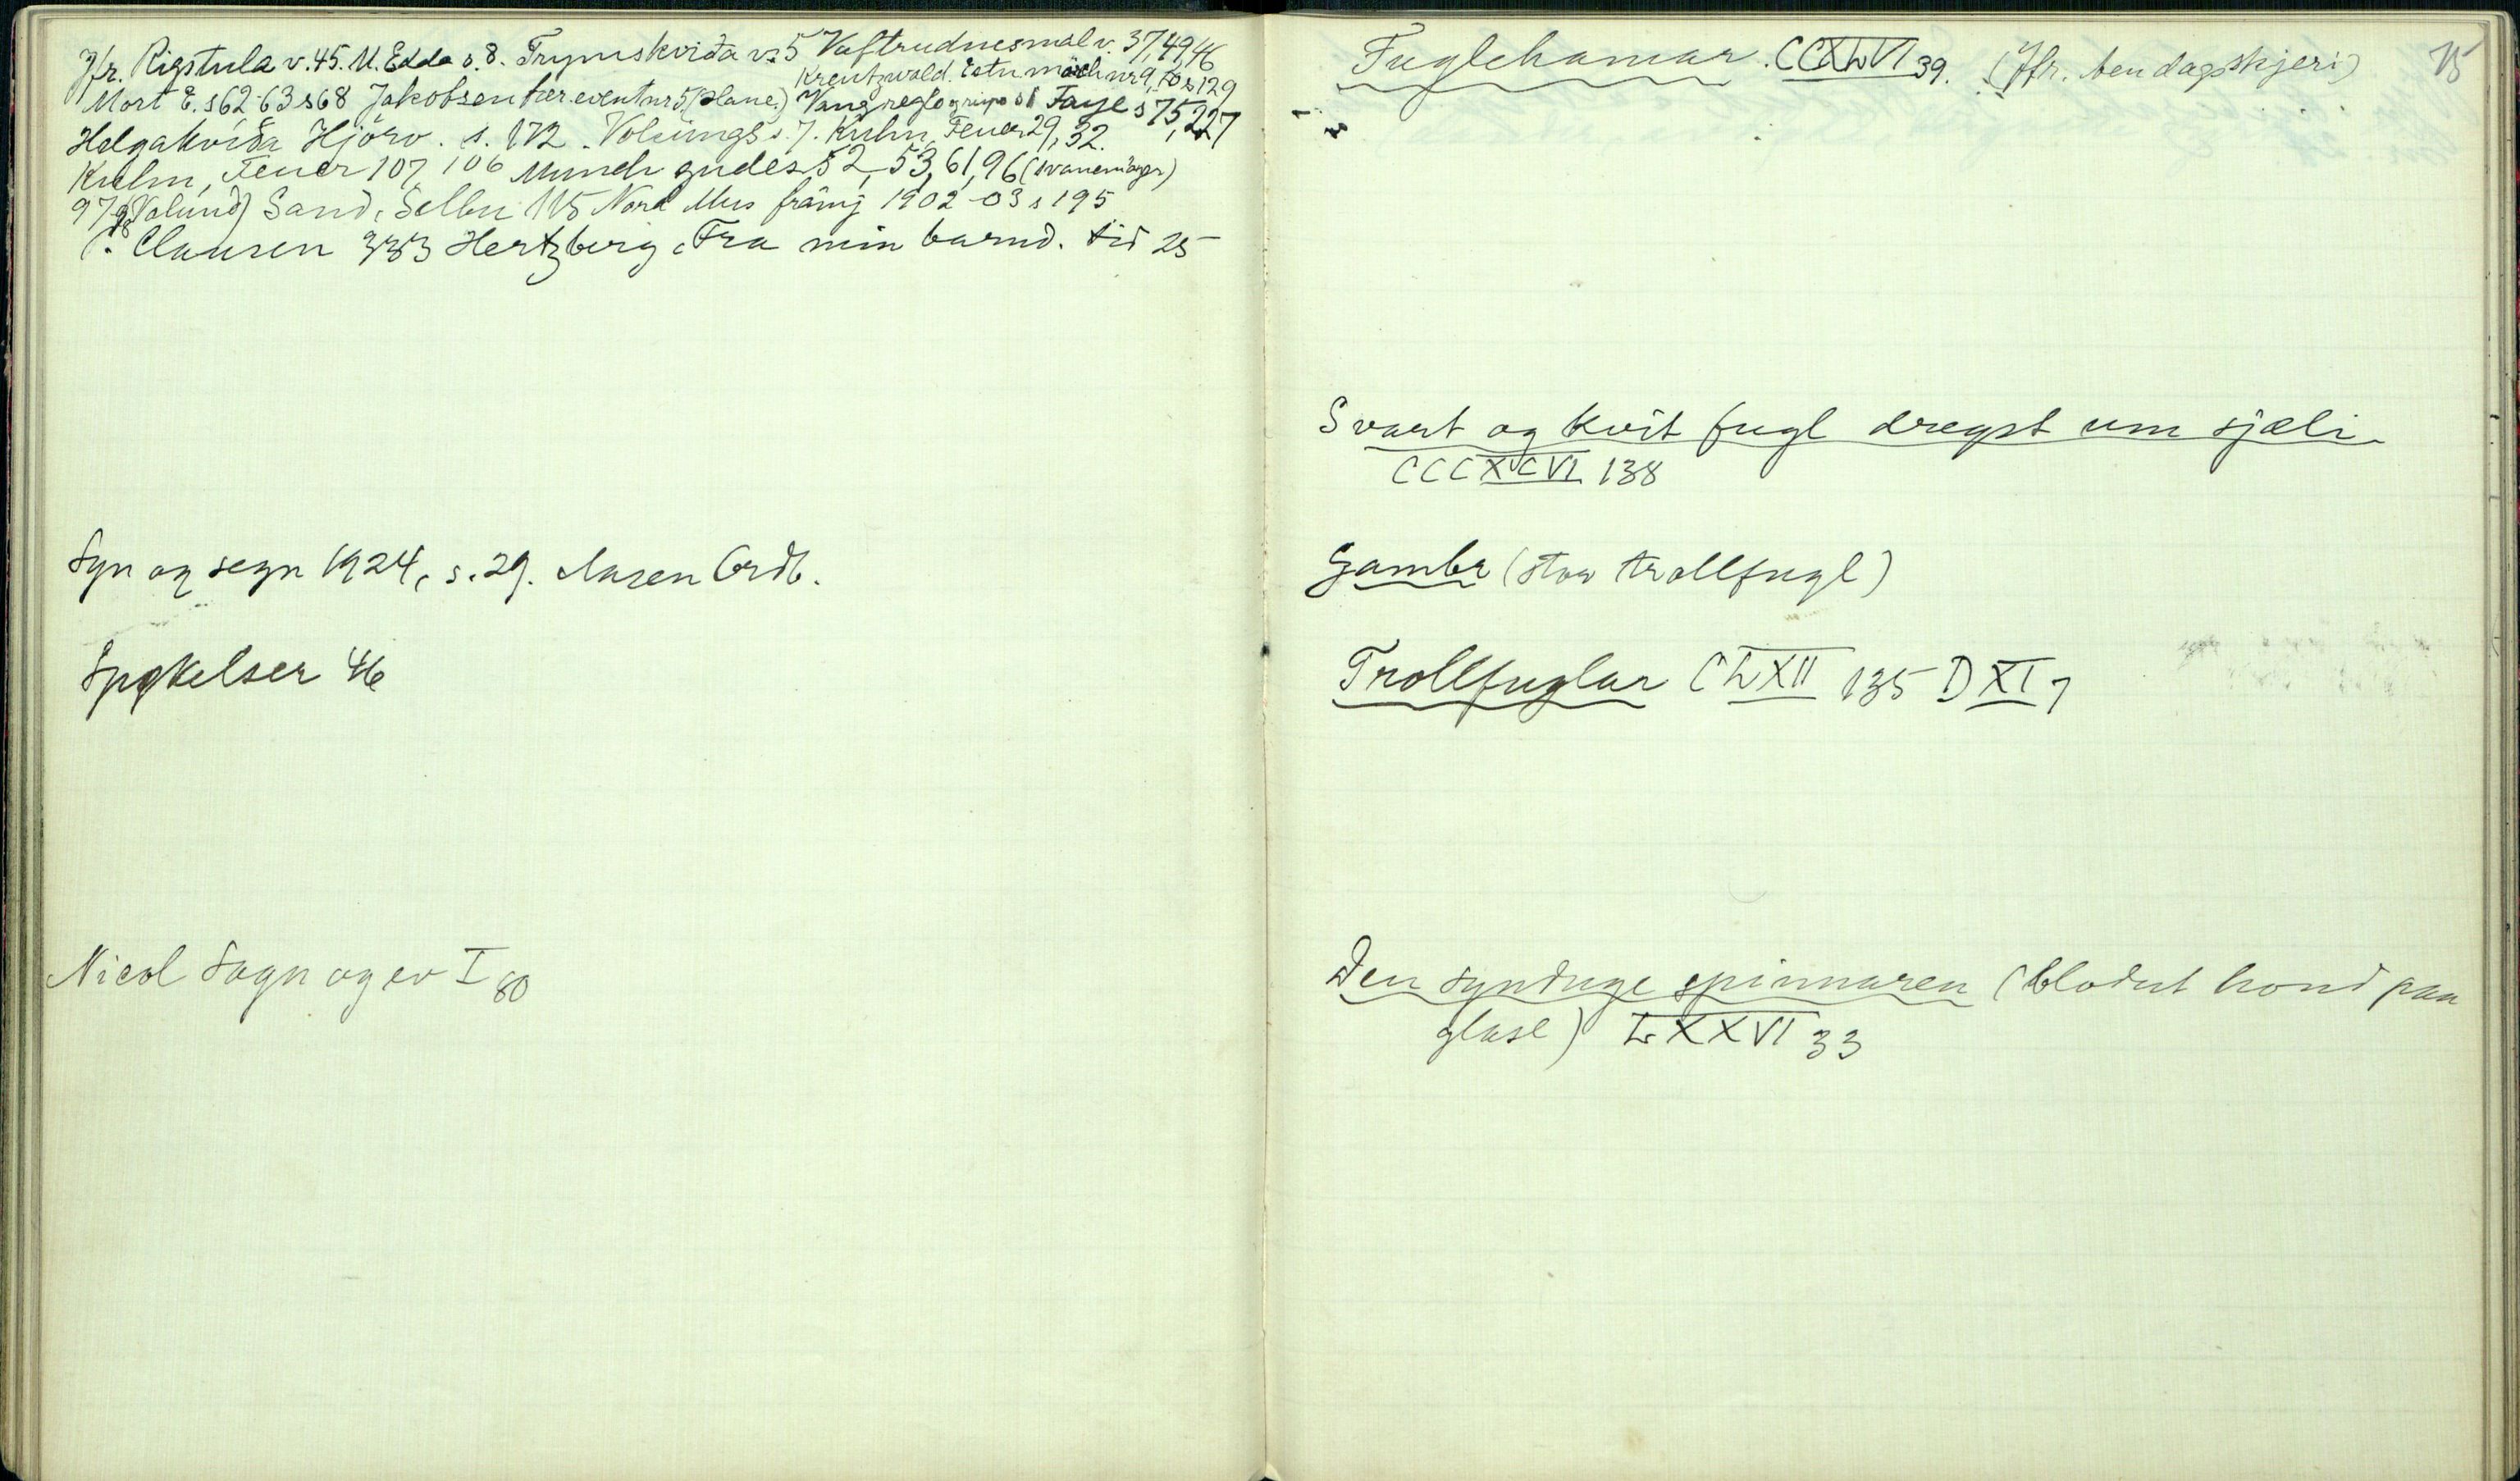 Jfr. Rigstula v. 45. U. Edda s. 8. Trymskviða v. 5 Vaftrudnesmal v. 37, 49, 46
Kreutzwald. Estn. märch nr 9, 70 s 129
Mort E. s 62-63 s 68 Jakobsen fær. event nr 5 (slane.) Vang reglo s 1 Faye s 75, 227
Helgakviða Hjörv. s. 172. Volsungs s. 7. Kuhn, Feuer 29, 32.
Kuhn, Feuer 107, 106 Munch gudes 52, 53, 61, 96 (svanemöyer)
97, 98 (Volund) Sand, Selbu 115 Nord Mus främj 1902-03 s 195
Clausen 383 Hertzberg, Fra min barnd. tid 25
Syn og segn 1924, s. 29. Aasen Ordb.
Spøkelser 46
Nicol Sagn og ev I 80
75
Fuglehamar. CCXLVI 39. (Jfr. bendagsskjeri)
Svart og kvit fugl dregst um sjæli.
CCCXCVI 138
Gambr (stor trollfugl)
Trollfuglar CLXII 135 DXI 7
Den synduge spinnaren (blodut hond paa
glase) LXXVI 33